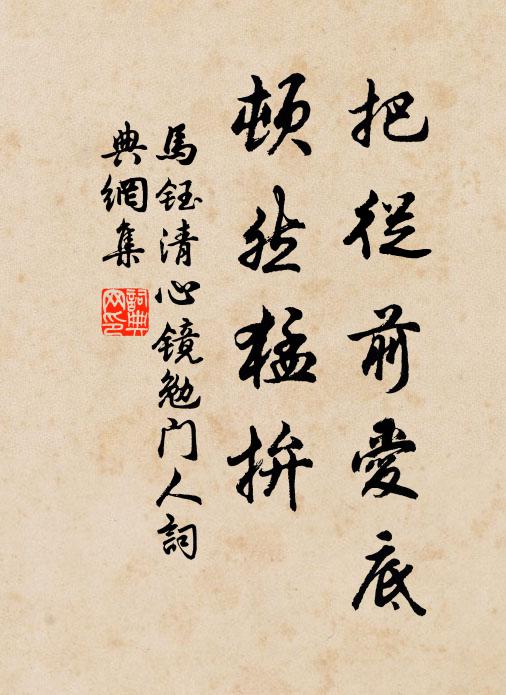 把從前愛底
頓然猛拚
馬鈺清心镜勉门人詞
典網集
詞典网印